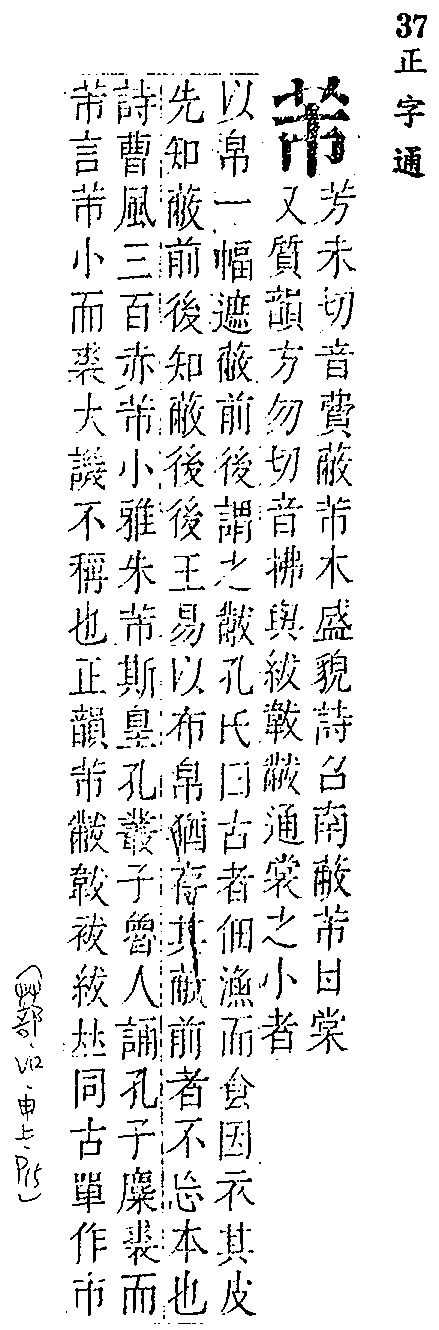 37 正字通
芾
芳未切音費蔽芾木盛貌詩召南蔽芾甘棠
又質韻方勿切音拂與紱韍黻通裳之小者
以帛一幅遮蔽前後謂之黻孔氏曰古者佃漁而食因衣其皮
先知蔽前後知蔽後後王易以布帛猶存其蔽前者不忘本也
詩曹風三百赤芾小雅朱芾斯皇孔叢子魯人誦孔子麋裘而
芾言芾小而裘大譏不稱也正韻芾黻韍袚紱𠀤同古單作巿
(艸部·V12·申上·P15)